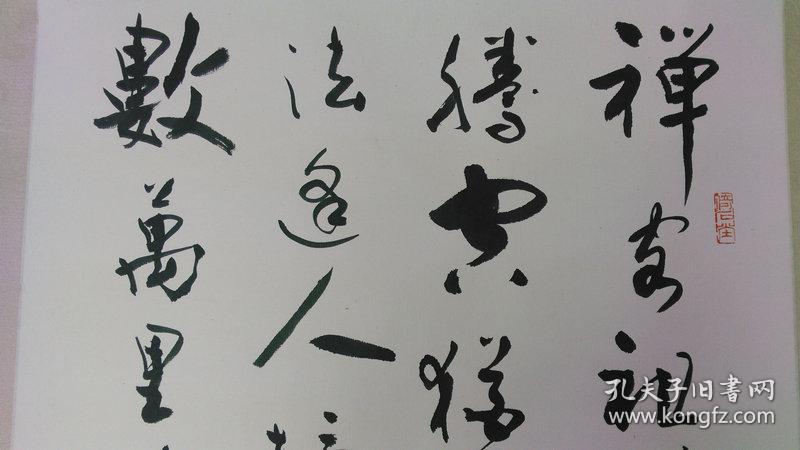 禅客祖
騰空獨
法逢人
數萬里
孔夫子旧书网
www.kongfz.com